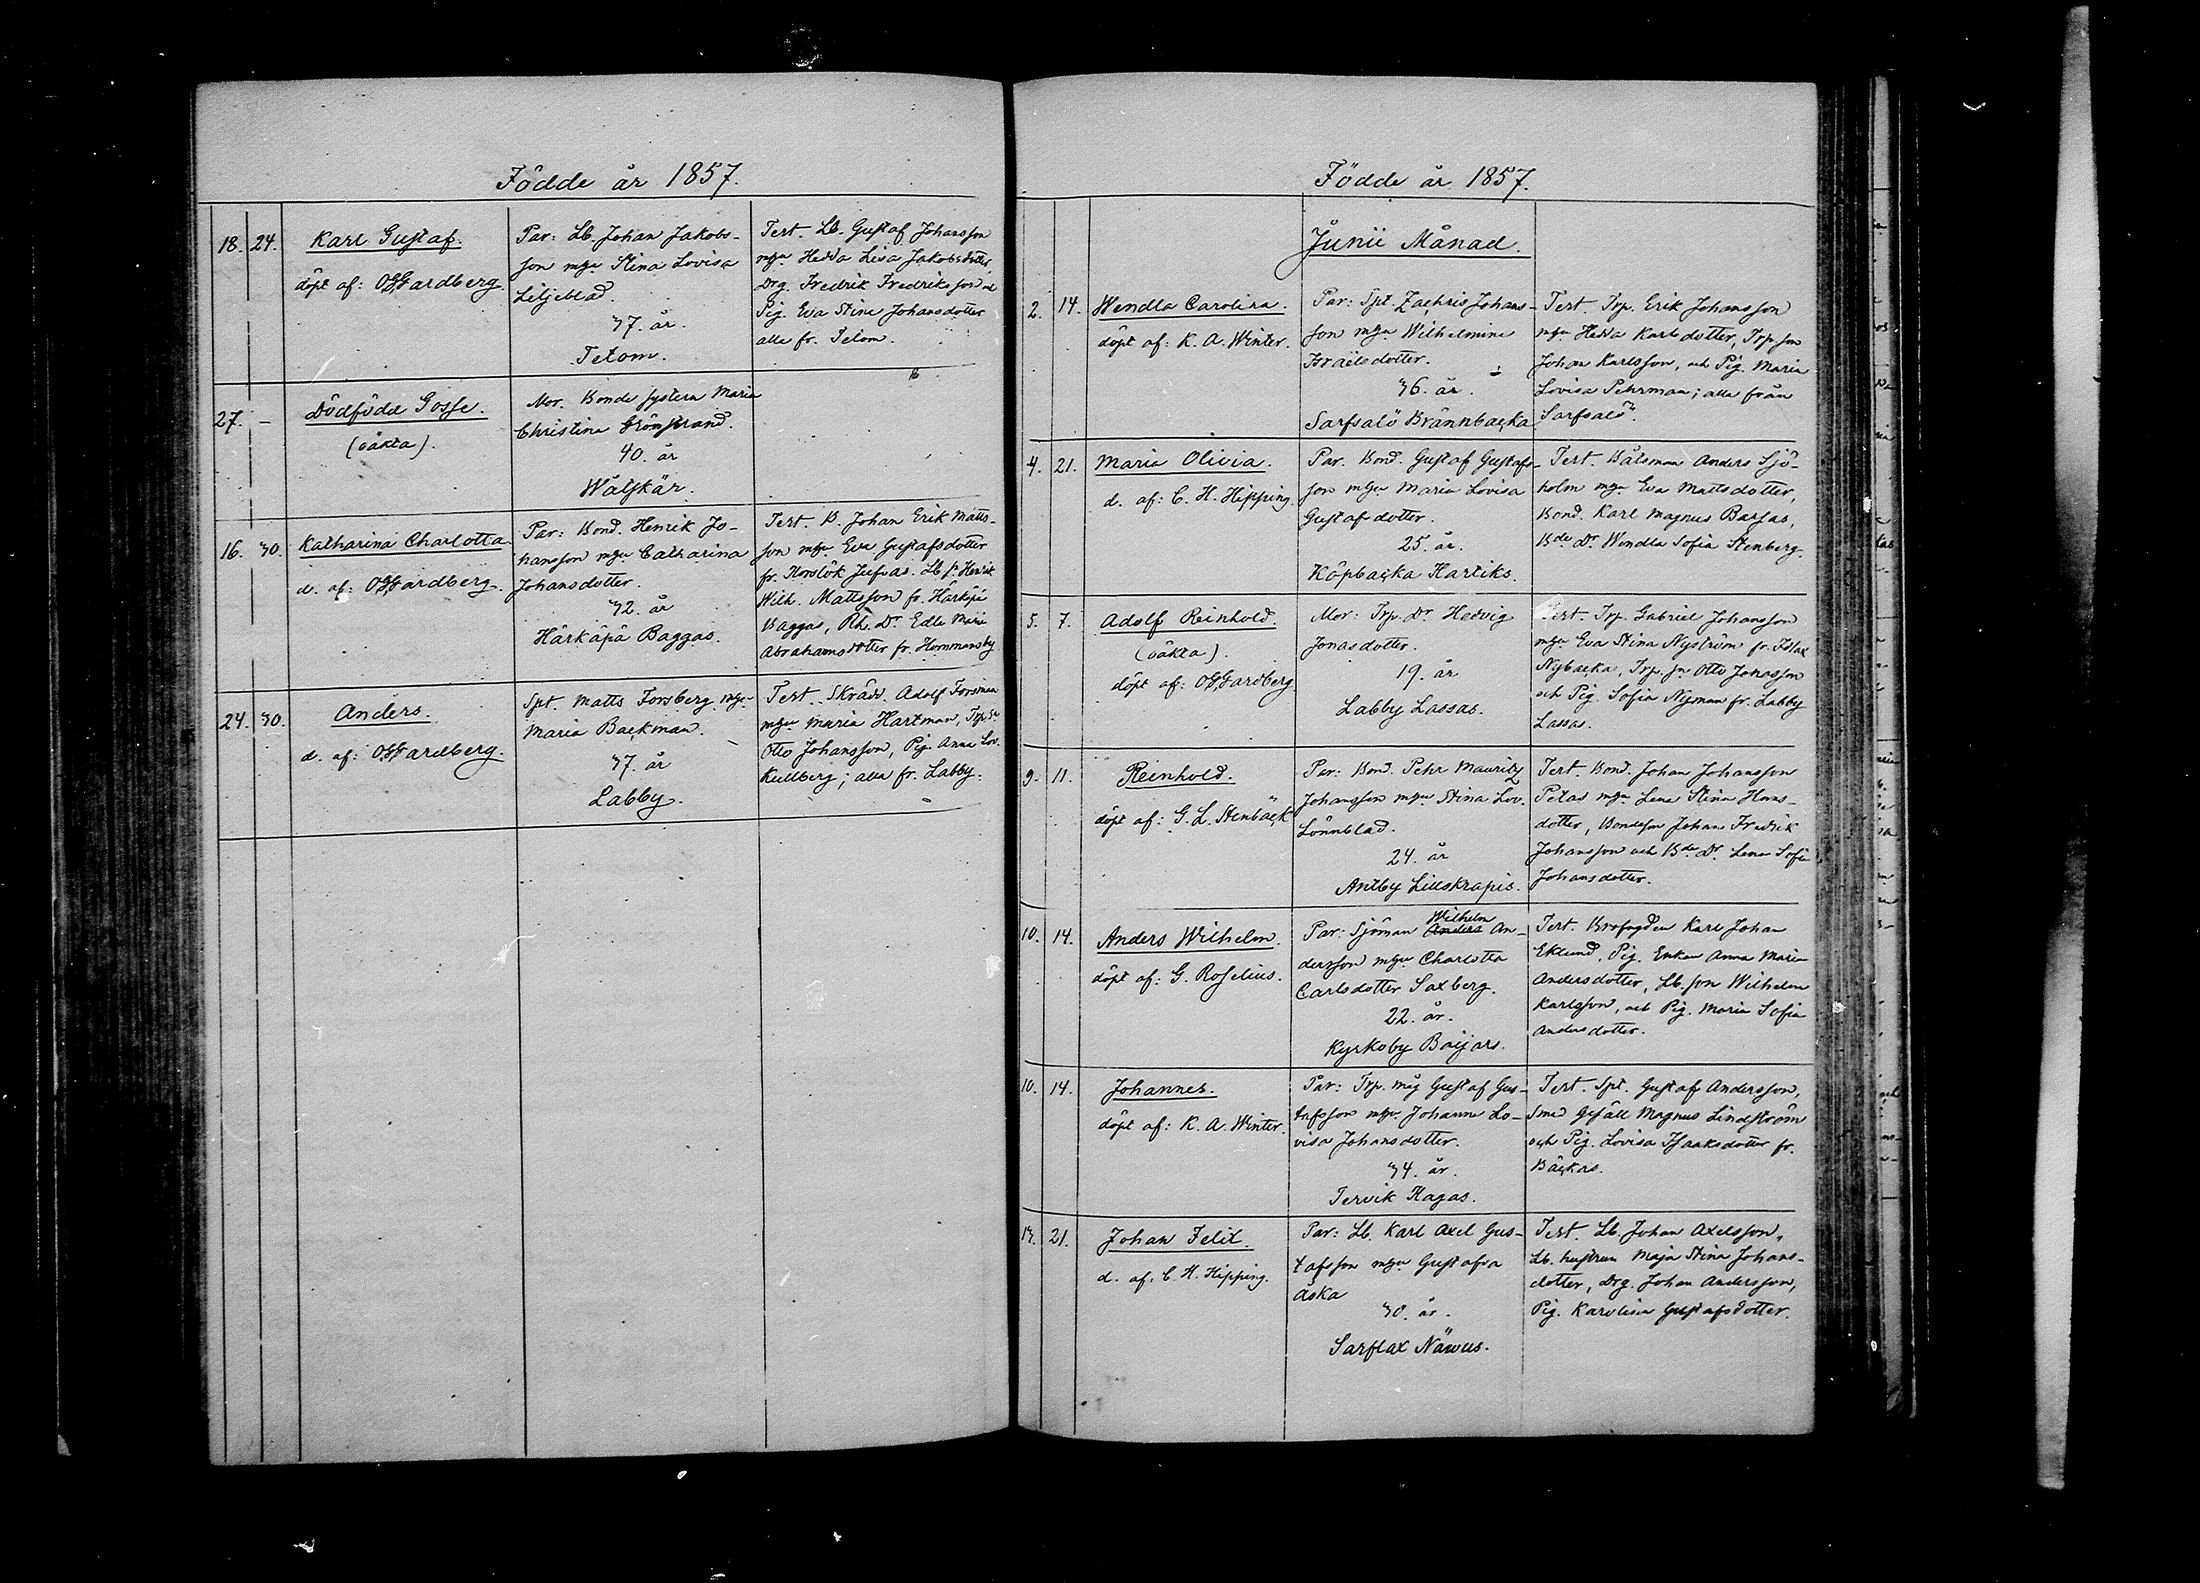 Födde år 1857.
18. 24. Karl Gustaf.
döpt af: OGGardberg.
Par: Lb. Johan Jakobs-
son mgu Stina Lovisa
Liljeblad.
37. år.
Tetom.
Test. Lb. Gustaf Johansson
mgu Hedda Lisa Jakobsdotter
Drg. Fredrik Fredriksson
Pig. Eva Stina Johansdotter
alla fr. Tetom.
27. – Dödfödd Gosse.
(oäkta).
Mor. Bonde system Maria
Christina Grönstrand.
40. år
Walskär.
16. 30. Katharina Charlotta
d. af: OGGardberg.
Par: Bond. Henrik Jo-
hansson mgu Catharina
Johansdotter.
32. år
Härkäpä Baggas.
Test. B. Johan Erik Matts-
son mgu Eva Gustafsdotter
fr. Horslök Jufvas. Lb s. Henrik
Wilh. Mattsson fr. Härkäpä
Baggas, Rh. Dr Edla Maria
Abrahamsdotter fr. Hommansby
24. 30. Anders.
d. af: OGGardberg.
Spt. Matts Forsberg mgu
Maria Backman.
37. år
Labby.
Test. Skrädd. Adolf Forsman
mgu Maria Hartman, Trp. Sn
Otto Johansson, Pig. Anna Lov.
Kullberg; alla fr. Labby.
Födde år 1857.
Junii Månad.
2. 14. Wendla Carolina.
döpt af: K. A. Winter.
Par: Spt. Zachris Johans-
son mgu Wilhelmina
Israëlsdotter.
36. år.
Sarfsalö Brännbacka
Test. Trp. Erik Johansson
mgu Hedda Karlsdotter, Trp. son
Johan Karlsson, och Pig. Maria
Lovisa Pehrman; alla från
Sarfsalö.
4. 21. Maria Olivia.
d. af: C. H. Hipping.
Par. Bond. Gustaf Gustafs-
son mgu Maria Lovisa
Gustafsdotter.
25. år.
Köpbacka Hartiks.
Test. Båtsman Anders Sjö-
holm mgu Eva Mattsdotter,
Bond. Karl Magnus Barsas,
Bde Dr Wendla Sofia Stenberg.
5. 7. Adolf Reinhold.
(oäkta).
döpt af: OGGardberg.
Mor: Trp. Dr Hedvig
Jonasdotter.
19. år
Labby Lassas.
Test. Trp. Gabriel Johansson
mgu Eva Stina Nyström fr.
Nybacka, Trp. sn Otto Jonasson
och Pig. Sofia Nyman fr. Labby
Lassas.
9. 11. Reinhold.
döpt af: G. L. Stenbäck
Par: Bond. Pehr Mauritz
Johansson mgu Stina Lov.
Lönnblad.
24. år
Antby Lillskrapis.
Test. Bond. Johan Johansson
Petas mgu Lena Stina Hans-
dotter, Bondeson Johan Fredrik
Johansson och Bde Dr Lena Sofia
Johansdotter.
10. 14. Anders Wilhelm.
döpt af: G. Roselius.
Wilhelm
Par: Sjöman Anders An-
dersson mgu Charlotta
Carlsdotter Saxberg.
22. år.
Kyrkoby Baijars.
Test. Brofogden Karl Johan
Eklund, Pig. Enkan Anna Maria
Andersdotter, Lb. son Wilhelm
Karlsson, och Pig. Maria Sofia
Andersdotter.
10. 14. Johannes.
döpt af: K. A. Winter.
Par: Trp. måg Gustaf Gus-
tafsson mgu Johanna Lo-
visa Johansdotter.
34. år.
Tervik Hagas.
Test. Spt. Gustaf Andersson,
Smed Gesäll Magnus Lindström
och Pig. Lovisa Isaaksdotter fr.
Bäckas.
13. 21. Johan Felix.
d. af: C. H. Hipping.
Par: Lb. Karl Axel Gus-
tafsson mgu Gustafva
Aska
30. år.
Sarflax Näwus.
Test. Lb. Johan Axelsson,
Lb. hustrun Maja Stina Johans-
dotter, Drg. Johan Andersson,
Pig. Karolina Gustafsdotter.